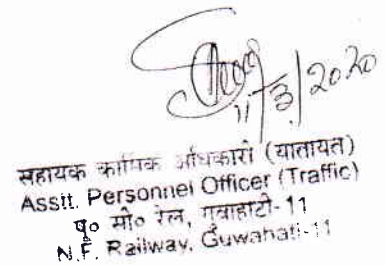 11/3/2020
सहायक कार्मिक अधिकारी (यातायत)
Assit. Personnel Officer (Traffic)
पू० सी० रेल, गुवाहाटी-11
N.F. Railway, Guwahati-11